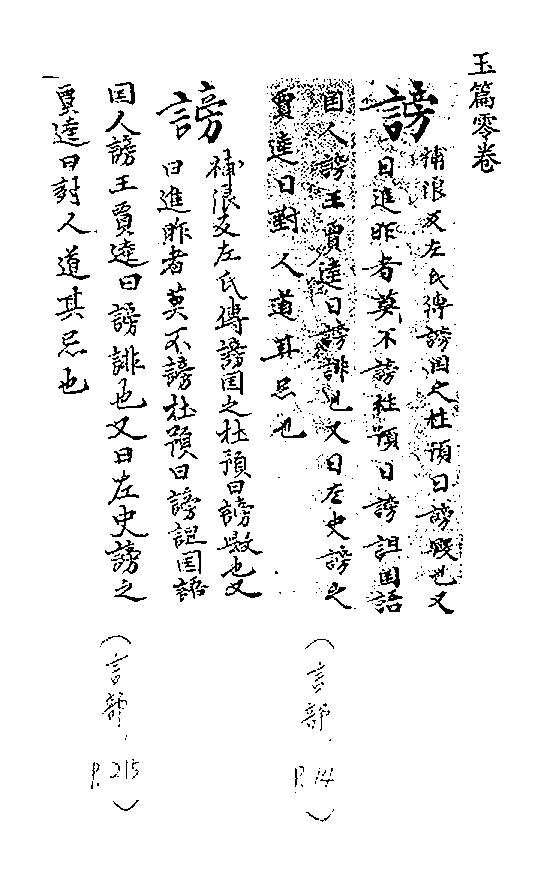 玉篇零卷
謗 補浪反左氏傳謗国之杜預曰謗毀也又
曰進昨者莫不謗杜預曰謗詛国語
国人謗王賈逵曰謗誹也又曰左史謗之
賈逵曰對人道其忌也
(言部. P.14)
謗 補浪反左氏傳謗国之杜預曰謗毀也又
曰進昨者莫不謗杜預曰謗詛国語
国人謗王賈逵曰謗誹也又曰左史謗之
賈逵曰對人道其忌也
(言部. P.215)